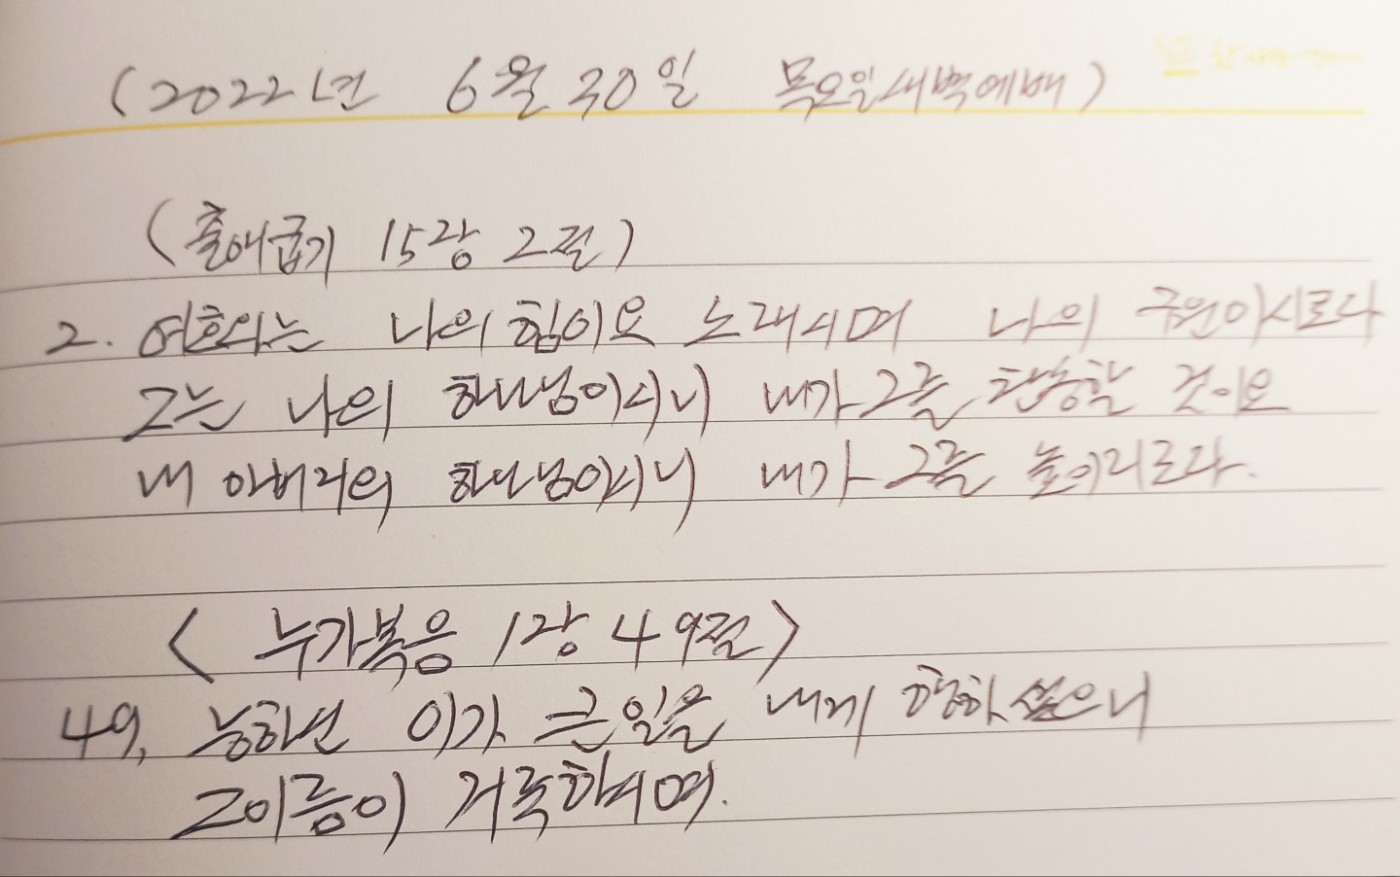 (2022년 6월 30일 목요일새벽예배)
(출애굽기 15장 2절)
2. 여호와는 나의 힘이요 노래시며 나의 구원이시로다
그는 나의 하나님이시니 내가 그를 찬송할 것이요
내 아버지의 하나님이시니 내가 그를 높이리로다.
< 누가복음 1장 49절>
49, 능하신 이가 큰 일을 내게 행하셨으니
그 이름이 거룩하시며.